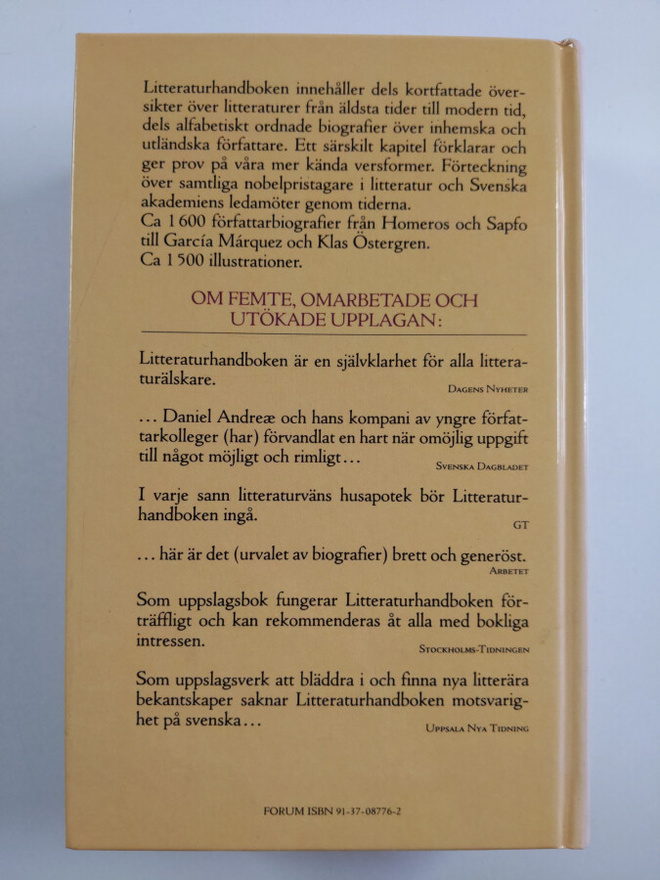 Litteraturhandboken innehåller dels kortfattade över-
sikter över litteraturer från äldsta tider till modern tid,
dels alfabetiskt ordnade biografier över inhemska och
utländska författare. Ett särskilt kapitel förklarar och
ger prov på våra mer kända versformer. Förteckning
över samtliga nobelpristagare i litteratur och Svenska
akademiens ledamöter genom tiderna.
Ca 1 600 författarbiografier från Homeros och Sapfo
till García Márquez och Klas Östergren.
Ca 1 500 illustrationer.
OM FEMTE, OMARBETADE OCH
UTÖKADE UPPLAGAN:
Litteraturhandboken är en självklarhet för alla littera-
turälskare.
DAGENS NYHETER
... Daniel Andreæ och hans kompani av yngre förfat-
tarkolleger (har) förvandlat en hart när omöjlig uppgift
till något möjligt och rimligt...
SVENSKA DAGBLADET
I varje sann litteraturväns husapotek bör Litteratur-
handboken ingå.
GT
... här är det (urvalet av biografier) brett och generöst.
ARBETET
Som uppslagsbok fungerar Litteraturhandboken för-
träffligt och kan rekommenderas åt alla med bokliga
intressen.
STOCKHOLMS-TIDNINGEN
Som uppslagsverk att bläddra i och finna nya litterära
bekantskaper saknar Litteraturhandboken motsvarig-
het på svenska...
UPPSALA NYA TIDNING
FORUM ISBN 91-37-08776-2